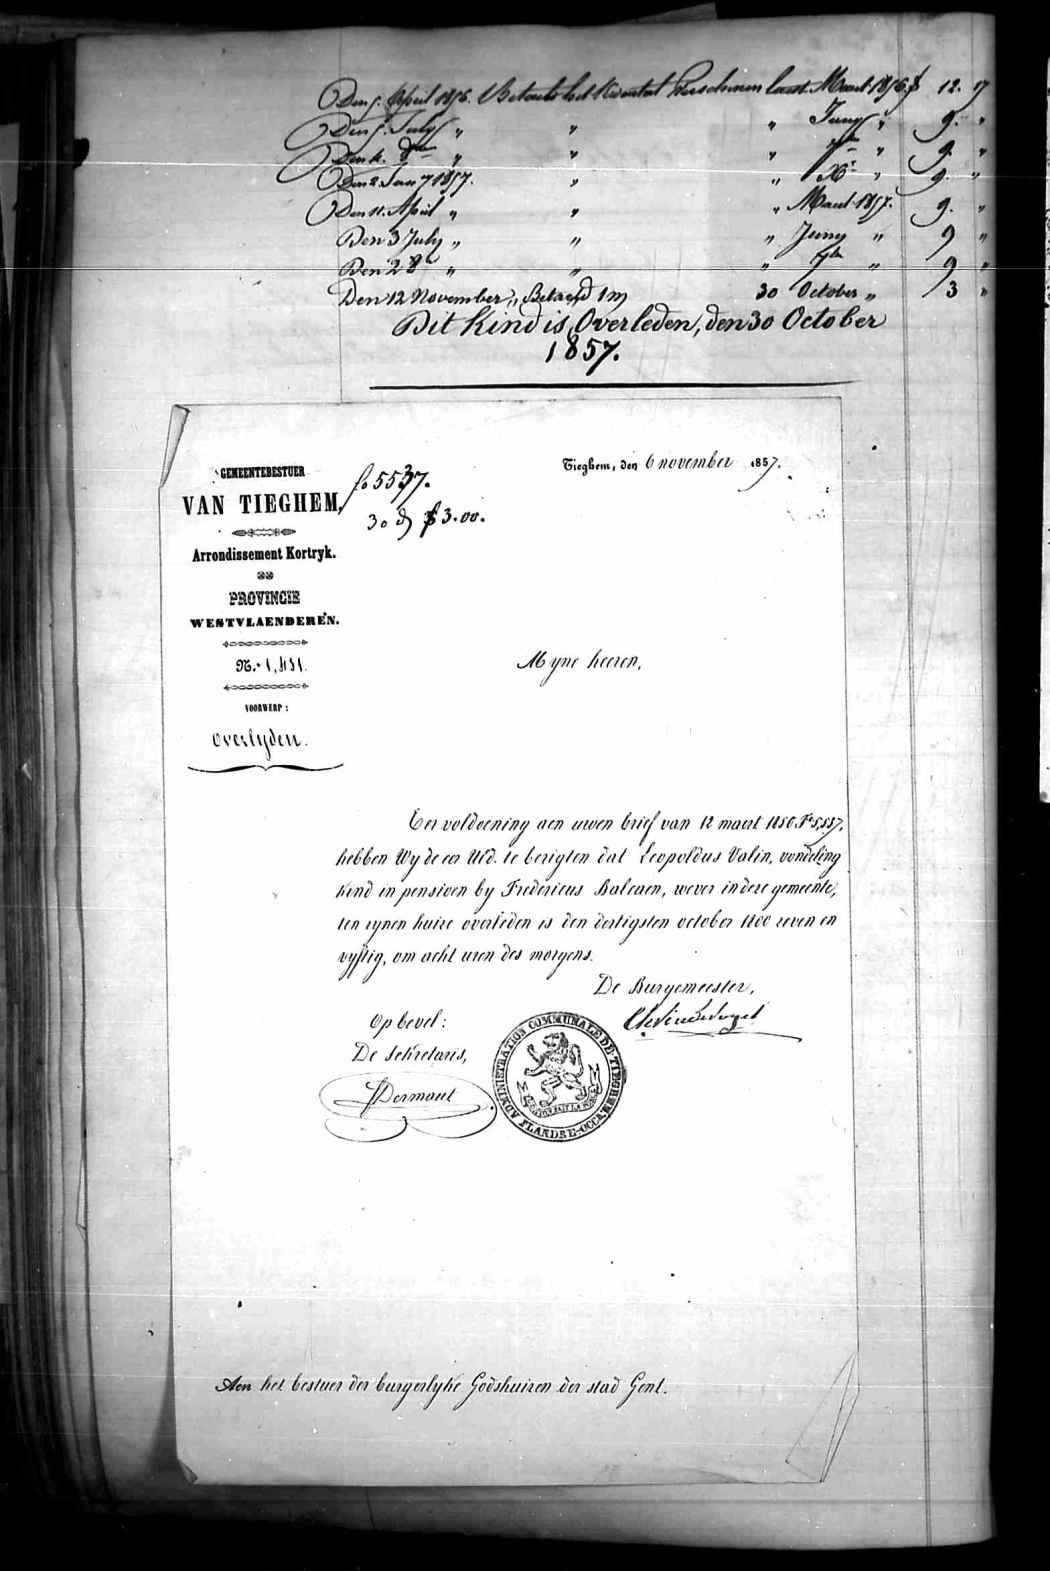 Den 5. April 1856. Betaelt het Kwartal Verschenen laest Maert 1856 f 12. 17
Den 5. July " " " Juny " 9. "
Den 4. 8bre " " " 7bre " 9. "
Den 2. Jan 7 1857. " " Xr " 9. "
Den 11. April " " " Maert 1857. 9. "
Den 3 July " " " Juny " 9 "
Den 2 8re " " " 7bre " 9 "
Den 12 November " Betaeld 1 m 30 October " 3 "
Dit Kind is Overleden, den 30 October
1857.
GEMEENTEBESTUER
VAN TIEGHEM,
Arrondissement Kortryk.
PROVINCIE
WESTVLAENDEREN.
N.r 1,451.
VOORWERP:
Overlyden.
fo 5537.
30 d f 3.00.
Tieghem, den 6 november 1857.
Myne heeren,
Ter voldoening aen uwen brief van 12 maert 1850 Fo 5,537,
hebben Wy de eer Ued. te berigten dat Leopoldus Valin, vondeling
kind in pensioen by Fredericus Balcaen, wever in deze gemeente,
ten zynen huize overleden is den dertigsten october 1800 zeven en
vyftig, om acht uren des morgens.
De Burgemeester,
Op bevel:
De Sekretaris,
ADMINISTRATION COMMUNALE DE TIEGHEM FLANDRE-OCC.
L'UNION FAIT LA FORCE
Aen het bestuer der burgerlyke Godshuizen der stad Gent.